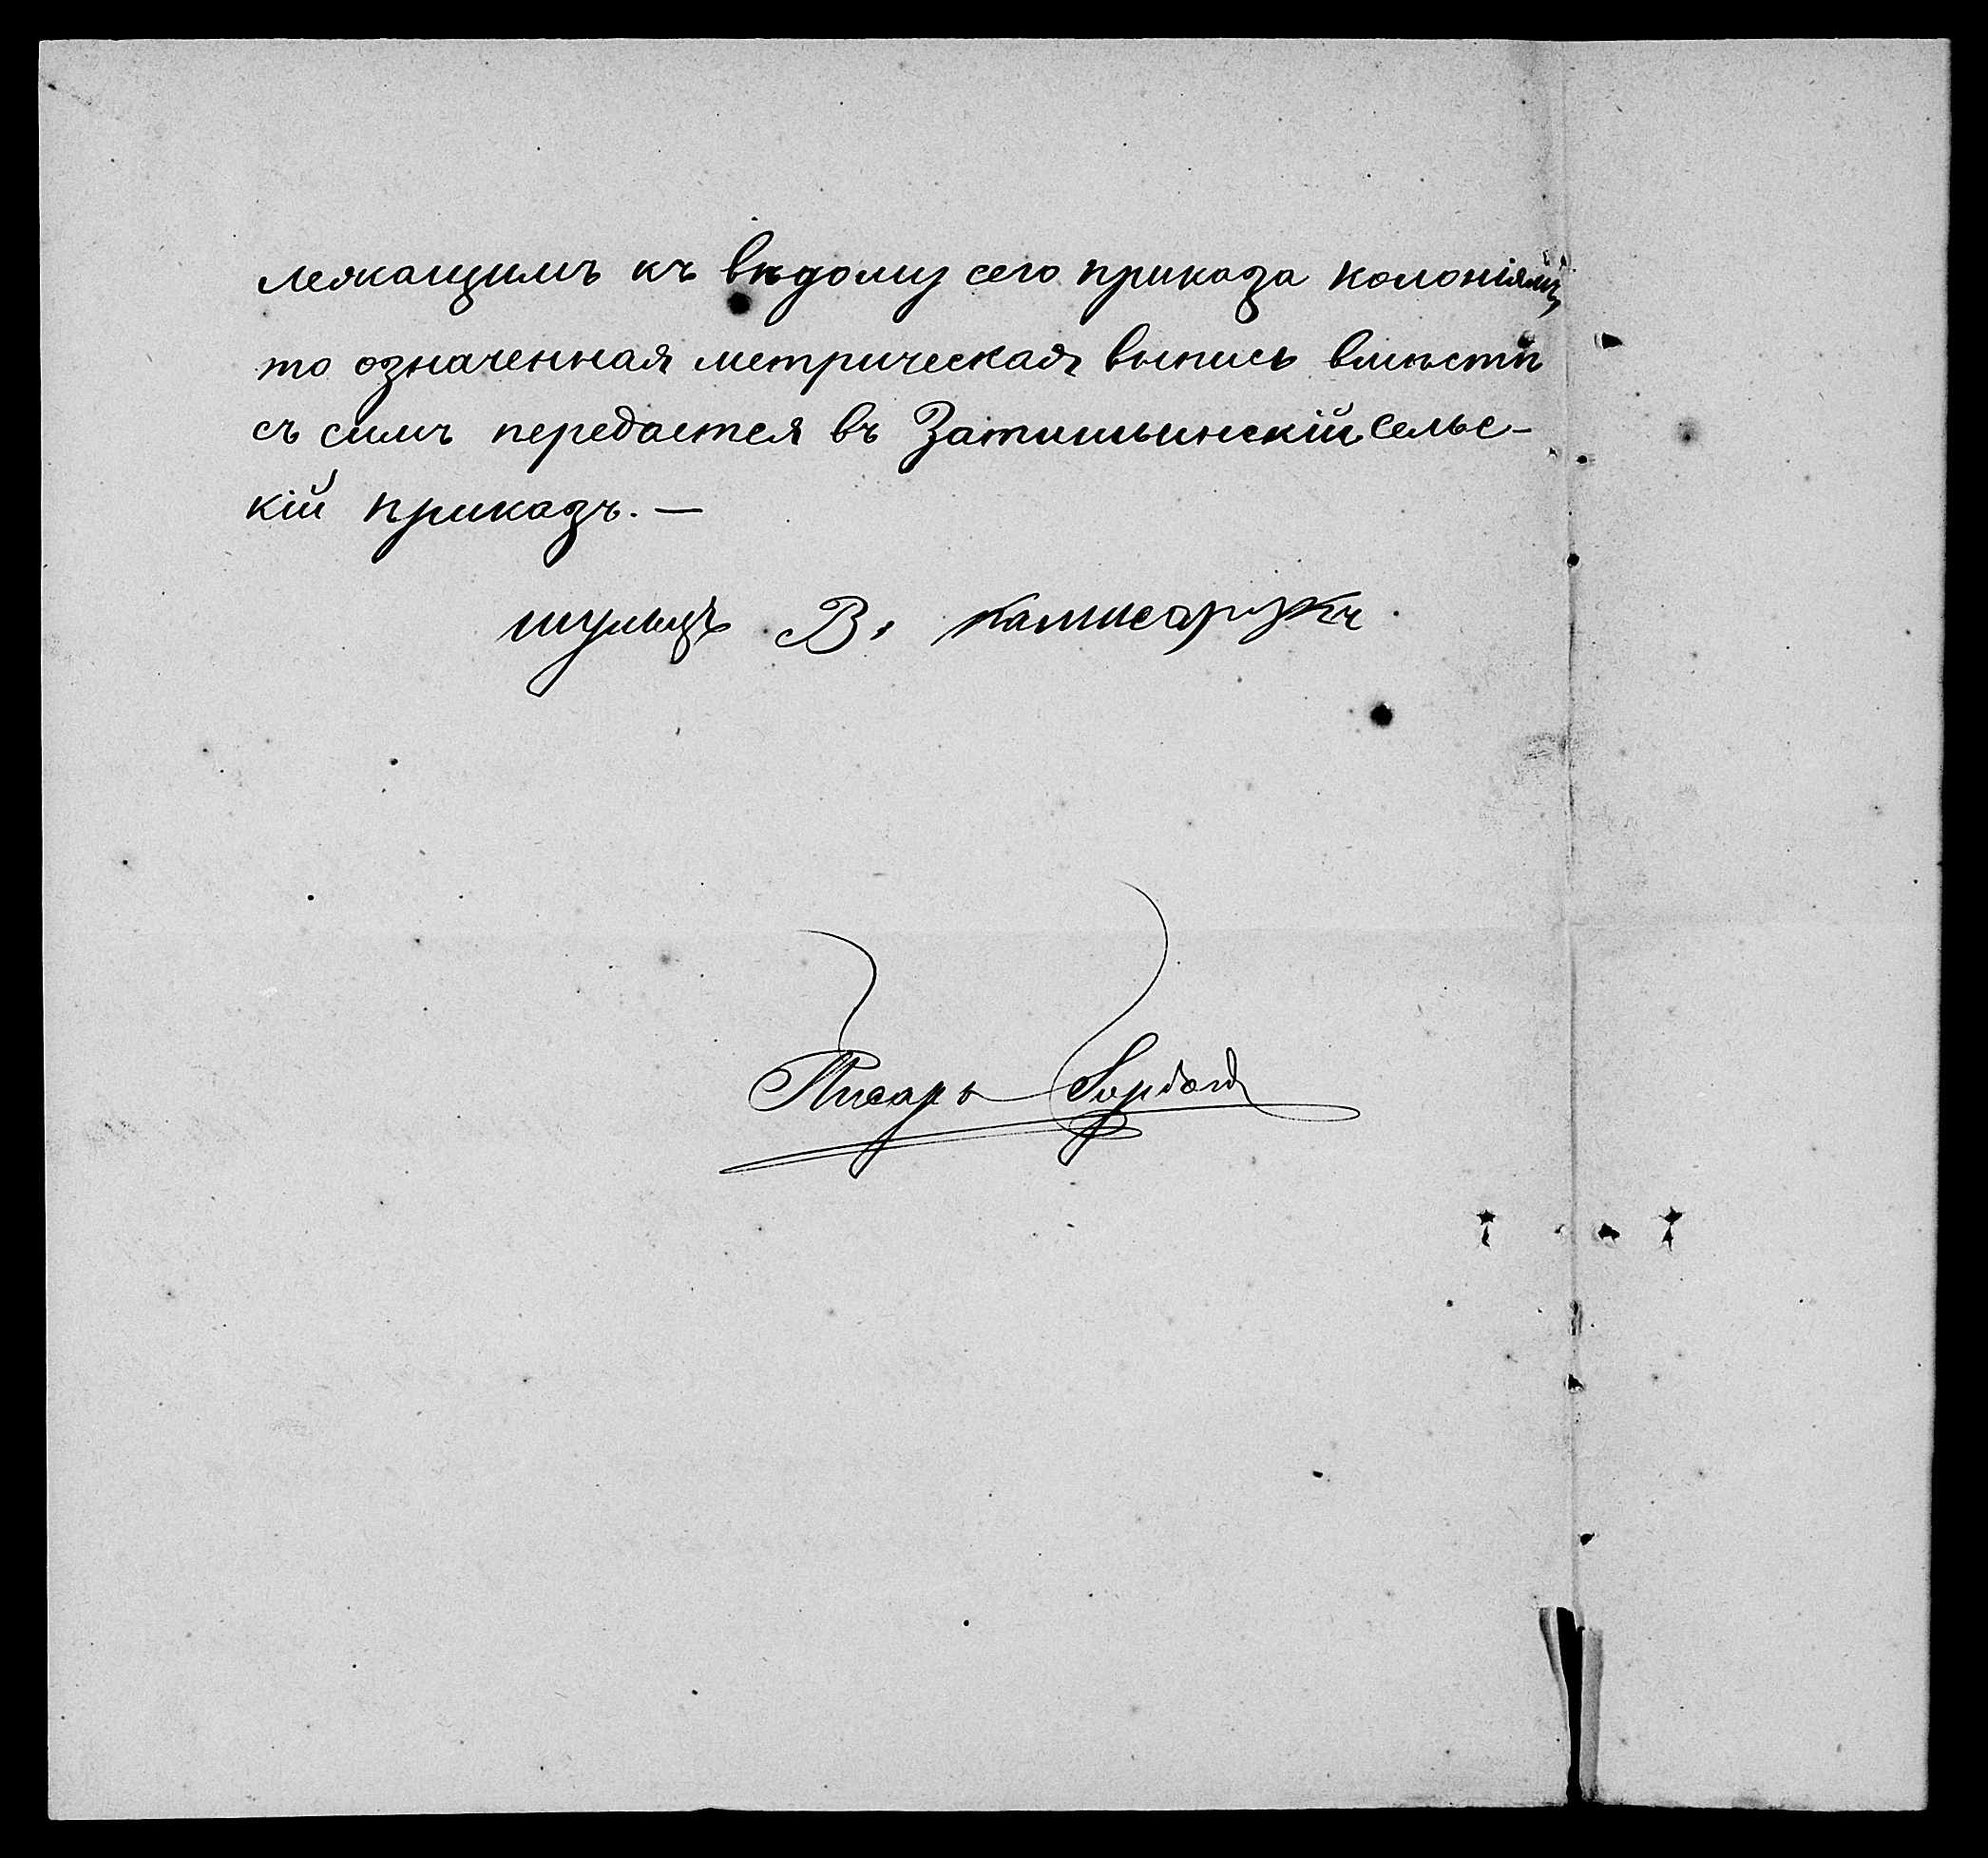 лежащимъ къ вѣдому сего приказа колоніямъ,
то означенная метрическая выпись вмѣстѣ
съ симъ передается въ Затишьинскій Сельс-
кій приказъ. —
шульцъ В. Камисарукъ
Писарь